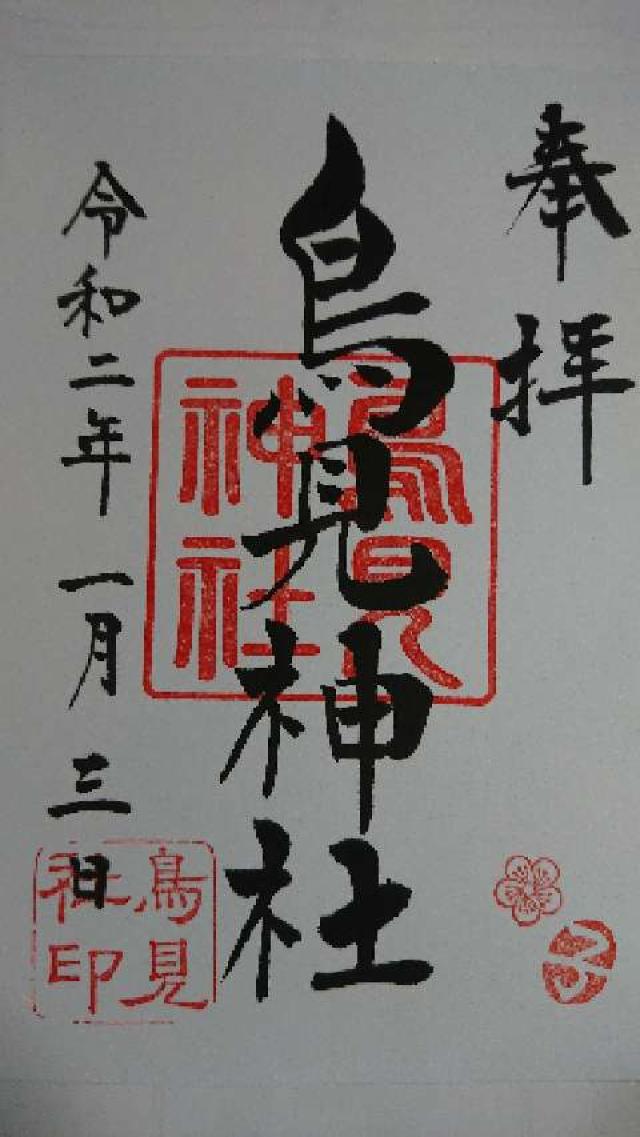 奉拝
鳥見神社
令和二年一月三日
鳥見
神社
鳥見
社印